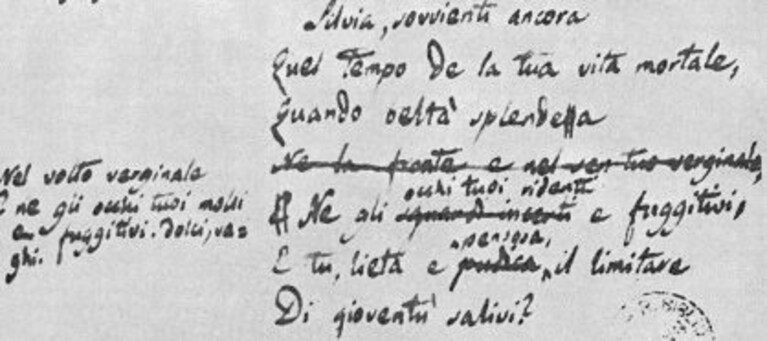 Silvia, sovvienti ancora
Quel tempo de la tua vita mortale,
Quando beltà splendea
Ne la fronte e nel sen tuo verginale,
occhi tuoi ridenti
E Ne gli sguardi incerti e fuggitivi,
pensosa,
E tu, lieta e pudica, il limitare
Di gioventù salivi?
Nel volto verginale
E ne gli occhi tuoi molli
e fuggitivi. dolci, va=
ghi.